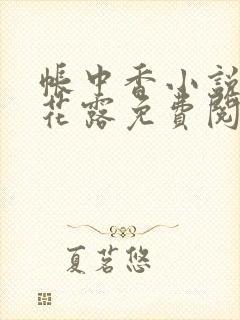 帳中香小說
花露免費閱
夏茗悠